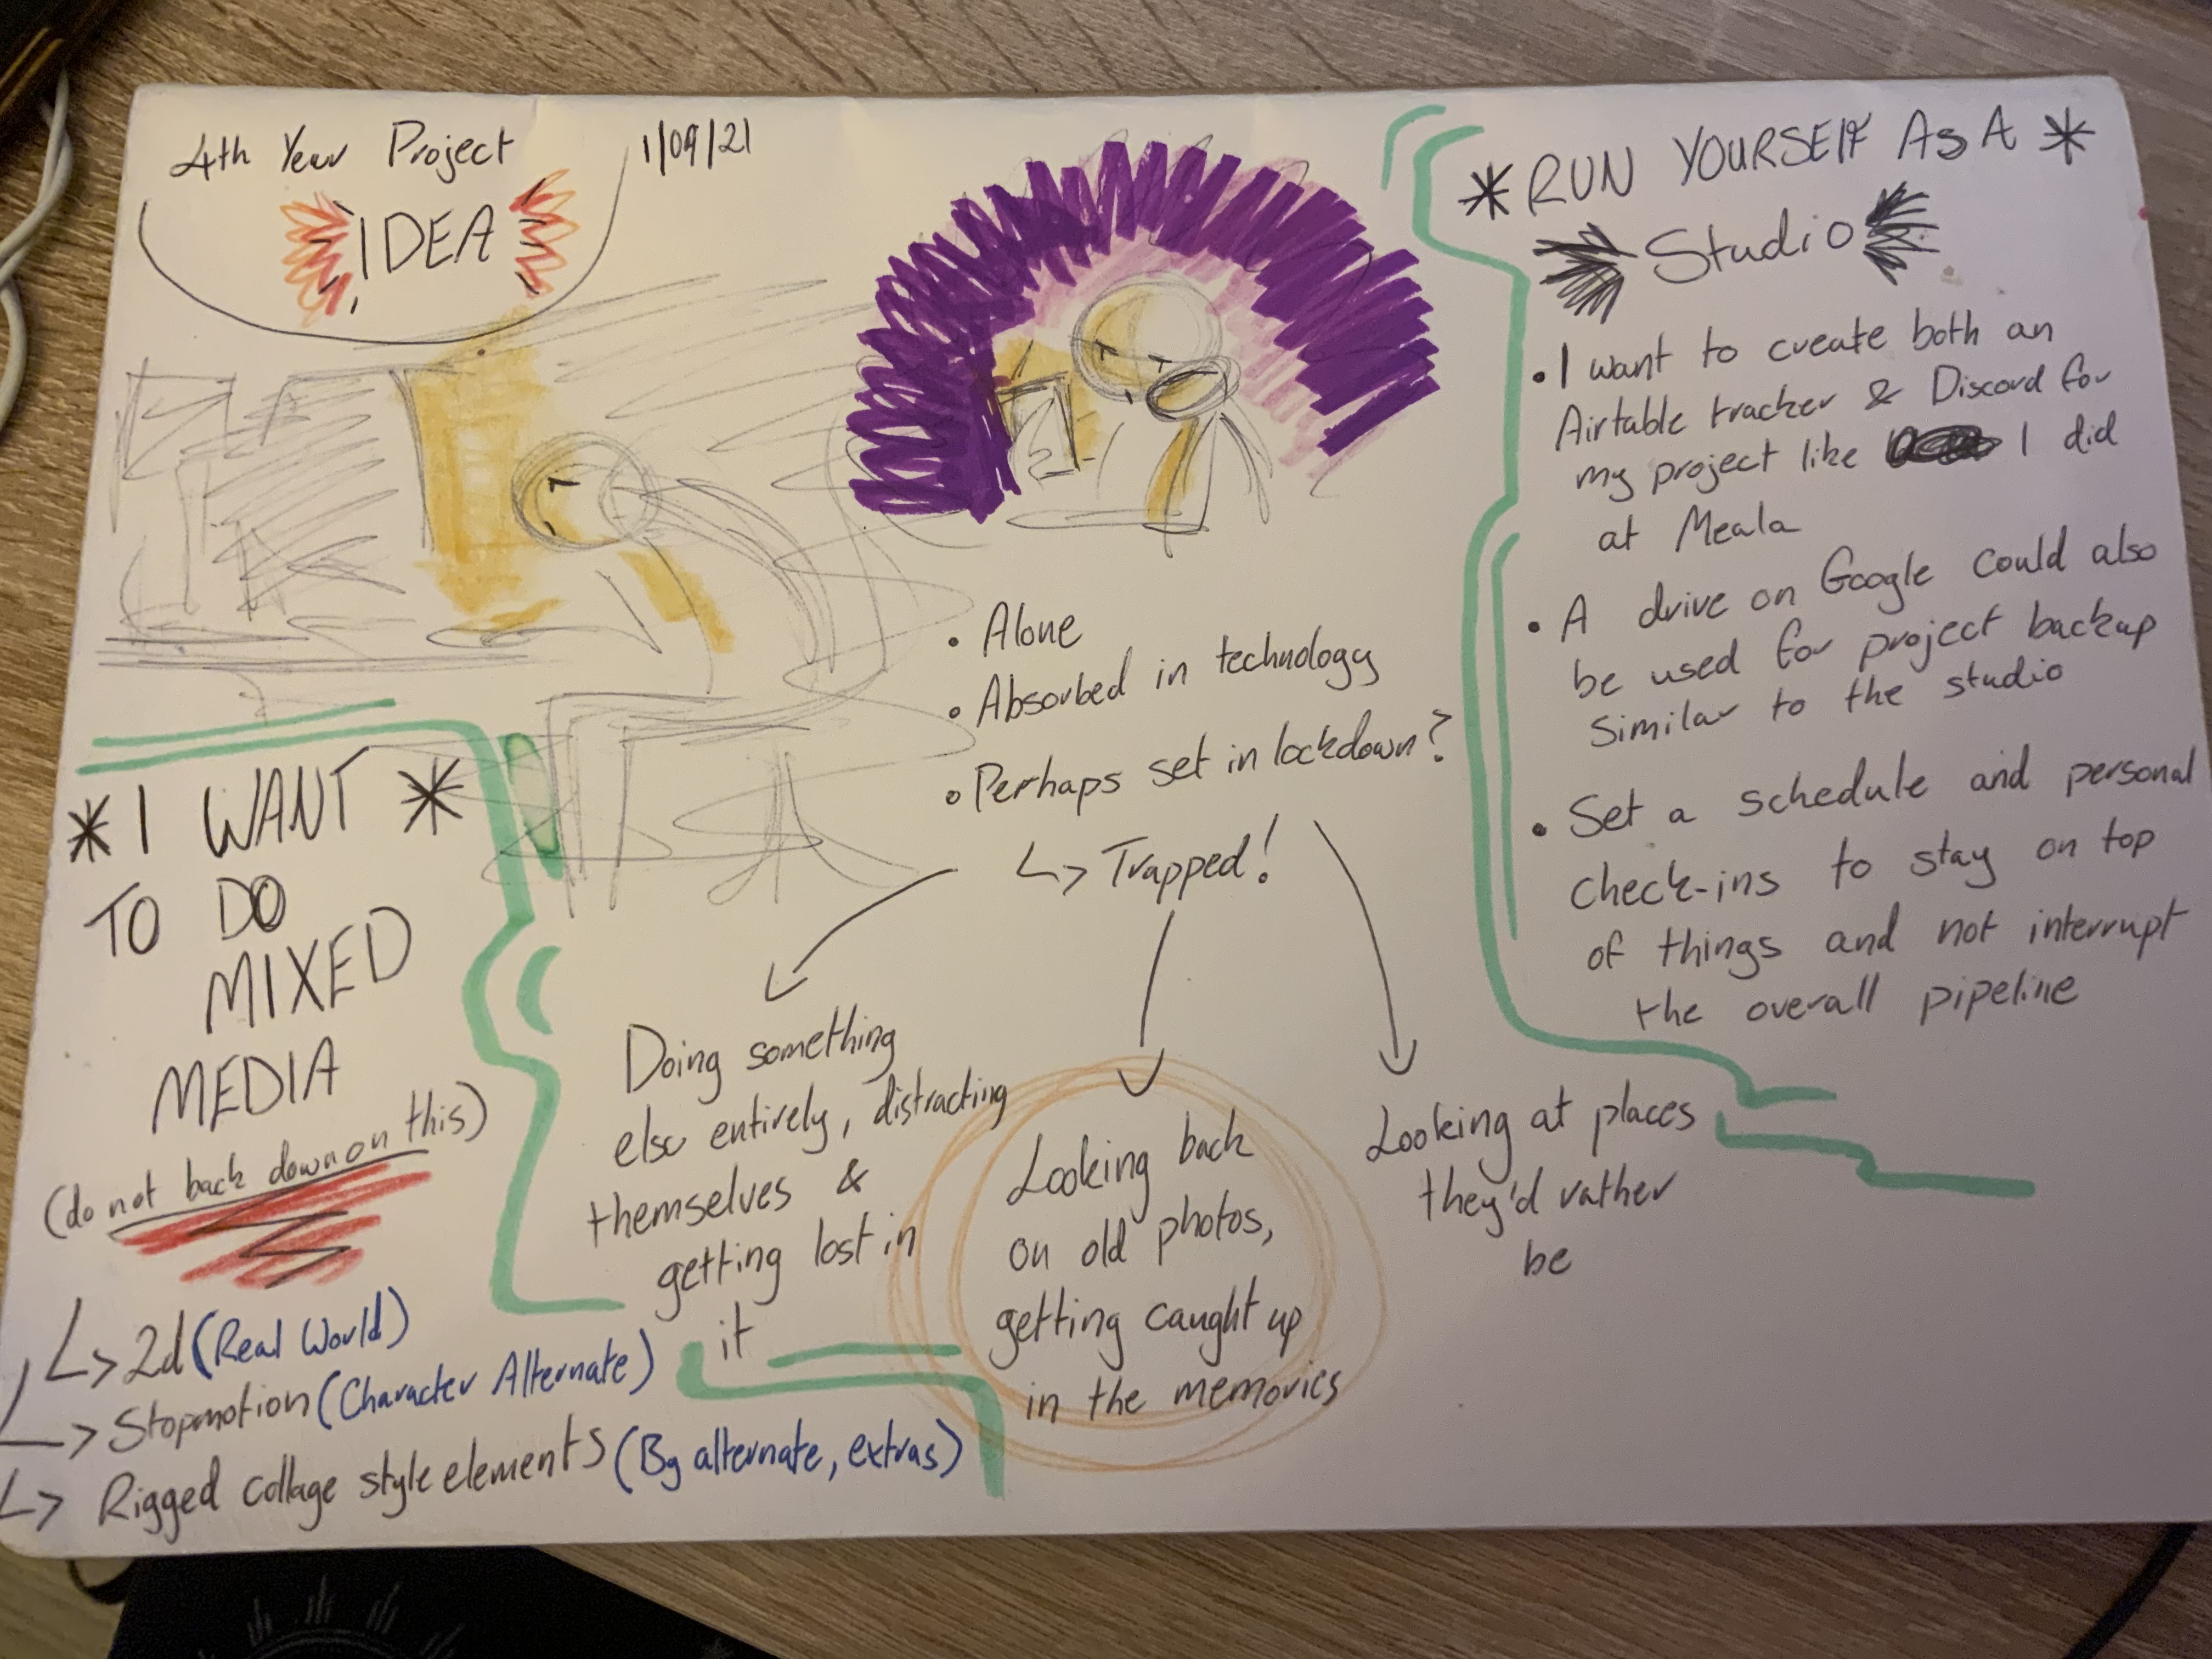 4th Year Project
IDEA
1/09/21
*RUN YOURSELF AS A *
Studio
• I want to create both an
Airtable tracker & Discord for
my project like I did
at Meala
• A drive on Google could also
be used for project backup
similar to the studio
• Set a schedule and personal
check-ins to stay on top
of things and not interrupt
the overall pipeline
• Alone
• Absorbed in technology
• Perhaps set in lockdown?
↳ Trapped!
Doing something
else entirely, distracting
themselves &
getting lost in
it
Looking back
on old photos,
getting caught up
in the memories
Looking at places
they'd rather
be
*I WANT *
TO DO
MIXED
MEDIA
(do not back down on this)
↳ 2d (Real World)
↳ Stopmotion (Character Alternate)
↳ Rigged collage style elements (Bg alternate, extras)